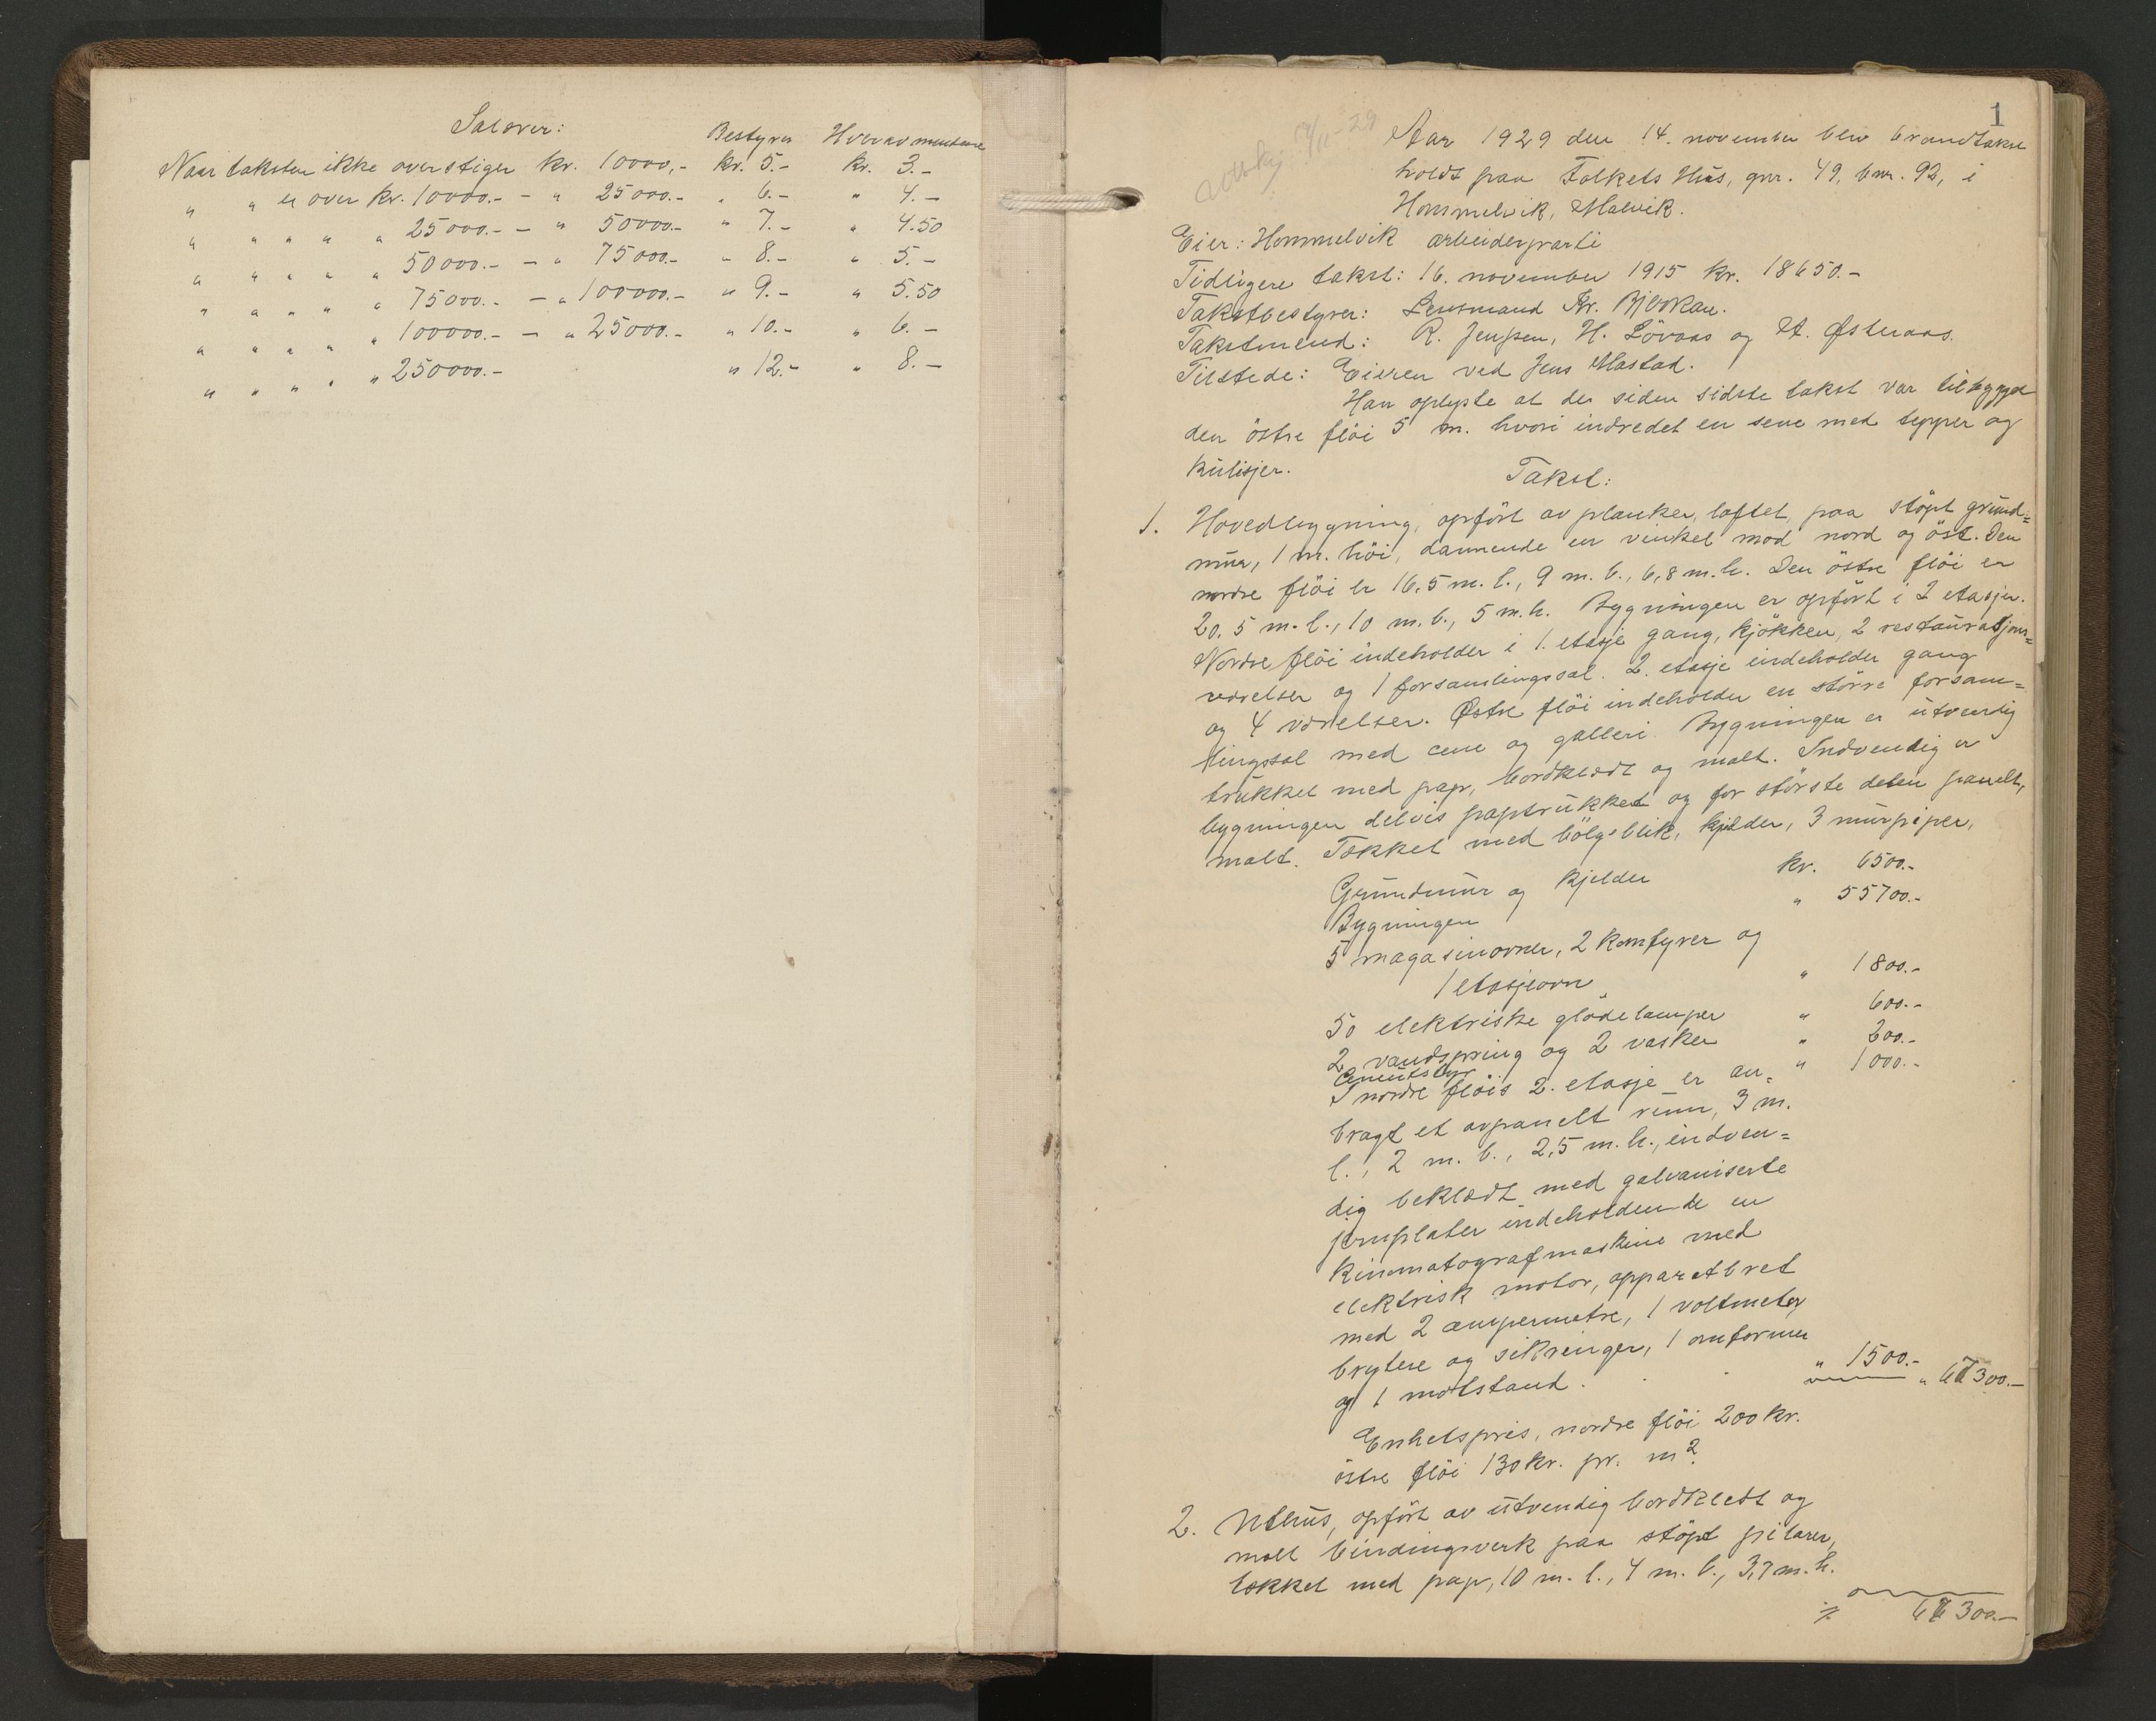 Salærer:
Bestyrer Hver av mændene
Naar taksten ikke overstiger kr. 10000,- kr. 5.- kr. 3.-
" " er over kr. 10000.- - " 25000.- " 6.- " 4.-
" " " " " 25000.- - " 50000.- " 7.- " 4.50
" " " " " 50000.- - " 75000.- " 8.- " 5.-
" " " " " 75000.- - " 100000.- " 9.- " 5.50
" " " " " 100000.- - " 25000.- " 10.- " 6.-
" " " " " 250000.- " 12.- " 8.-
1
14/11-29
Aar 1929 den 14. november blev brandtakst
holdt paa Folkets Hus, gnr. 49, bnr. 92, i
Hommelvik, Malvik.
Eier: Hommelvik arbeiderparti
Tidligere takst: 16. november 1915 kr. 18650.-
Takstbestyrer: Lensmand Kr. Bjørkan.
Takstmend: R. Jenssen, H. Lövaas og A. Østeraas.
Tilstede: Eieren ved Jens Mastad.
Han oplyste at der siden sidste takst var tilbygget
den östre flöi 5 m. hvori indredet en sene med tepper og
kulisjer.
Takst:
1. Hovedbygning, opfört av planker, loftet, paa stöpt grund=
mur, 1 m. höi, dannende en vinkel mod nord og öst. Den
nordre flöi er 16,5 m. l., 9 m. b., 6,8 m. h. Den östre flöi er
20,5 m. l., 10 m. b., 5 m. h. Bygningen er opfört i 2 etasjer.
Nordre flöi indeholder i 1. etasje gang, kjökken, 2 restaurasjons=
værelser og 1 forsamlingssal. 2. etasje indeholder gang
og 4 værelser. Østre flöi indeholder en större forsam=
lingssal med cene og galleri. Bygningen er utvendig
trukket med pap, bordklædt og malt. Indvendig er
bygningen delvis paptrukket og for störste delen panelt,
malt. Tækket med bölgeblik, kjelder, 3 murpiper,
Grundmur og kjelder kr. 6500.-
Bygningen " 55700.-
5 magasinovner, 2 komfyrer og
1 etasjeovn " 1800.-
50 elektriske glödelamper " 600.-
2 vandspring og 2 vasker " 200.-
Ceneutstyr " 1000.-
I nordre flöis 2. etasje er an=
bragt et avpanelt rum, 3 m.
l., 2 m. b., 2,5 m. h., indven=
dig beklædt med galvaniserte
jernplater indeholdende en
kinematografmaskine med
elektrisk motor, apparatbret
med 2 ampermetre, 1 voltmeter,
brytere og sikringer, 1 omformer
og 1 motstand. " 1500.- " 67300.-
Enhetspris, nordre flöi 200 kr.
östre flöi 130 kr. pr. m².
2. Uthus, opfört av utvendig bordklædt og
malt bindingsverk paa stöpt pilarer,
tækket med pap, 10 m. l., 4 m. b., 3,7 m. h.
67300.-